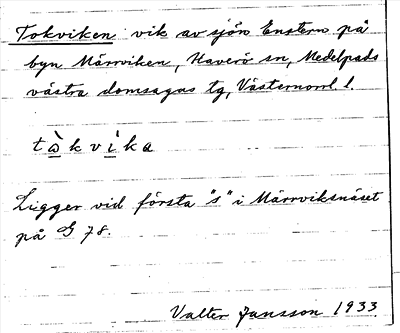 Tokviken vik av sjön Enstern på
byn Märrviken, Haverö sn, Medelpads
västra domsagas tg, Västernorrl. l.
tòkvìka
Ligger vid första "s" i Märrviksnäset
på G 78.
Valter Jansson 1933